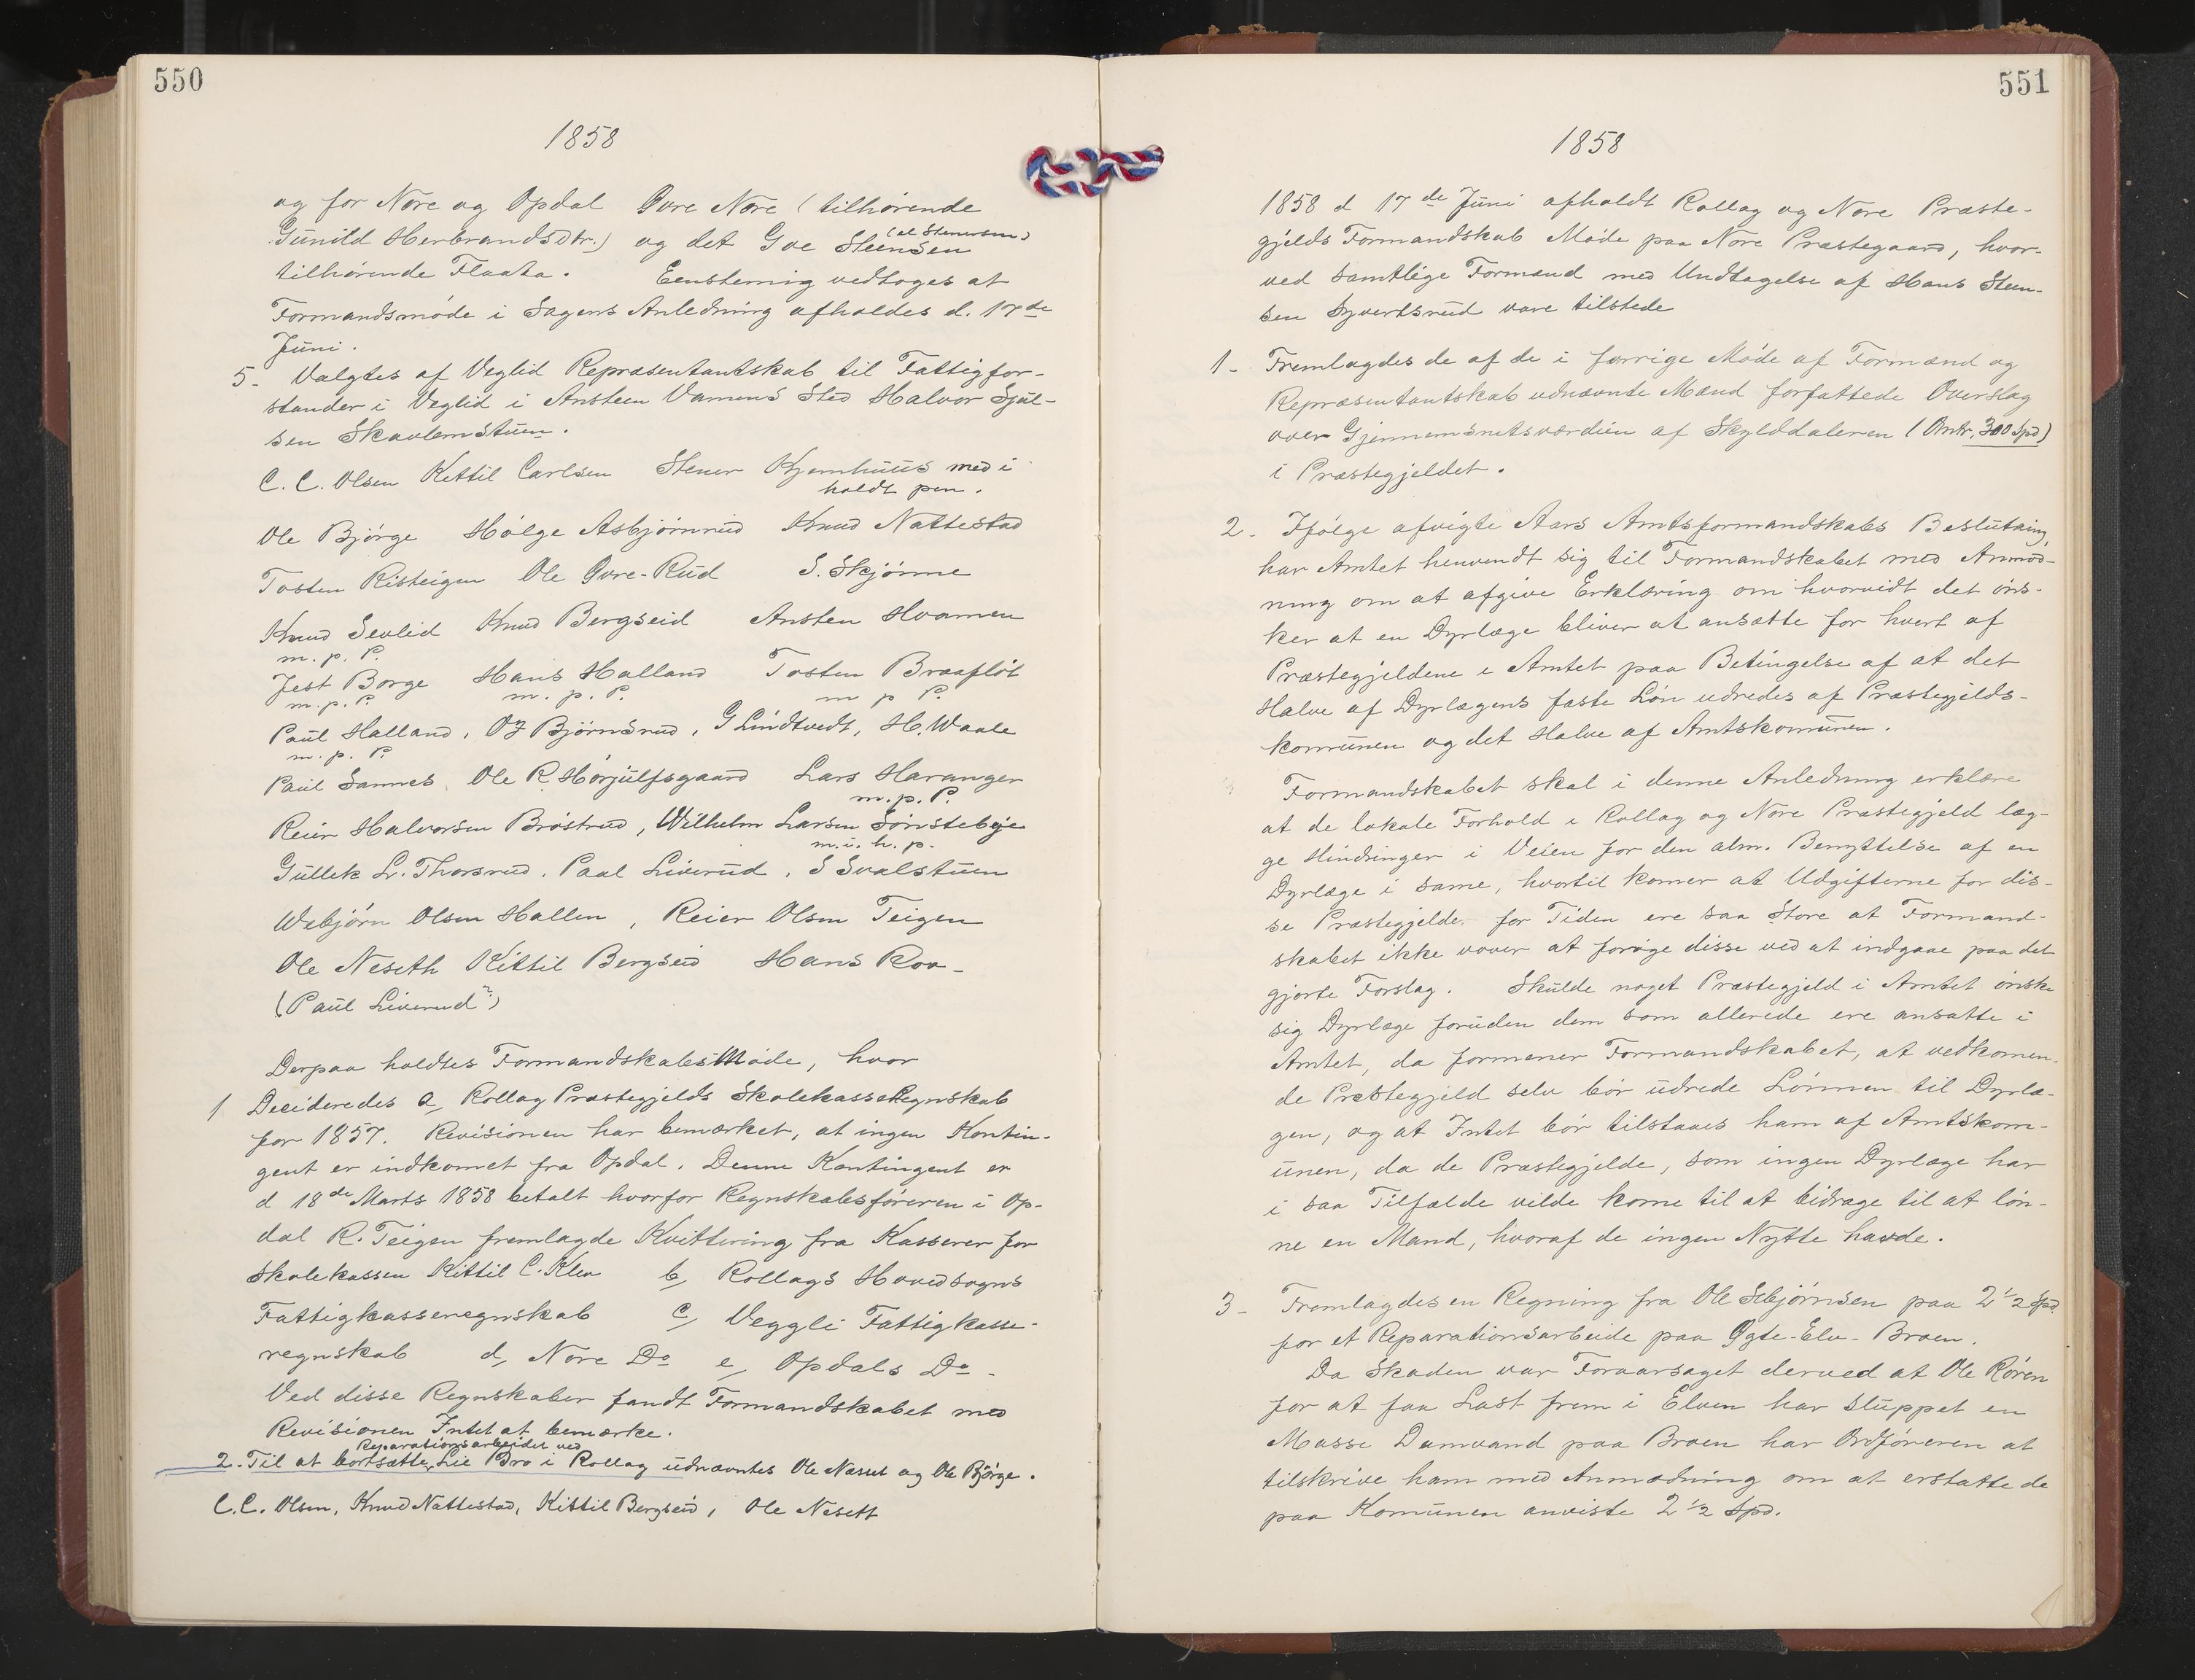 550
1858
og for Nore og Opdal Øvre Nore (tilhørende
Gunild Herbrandsdtr.) og det Gve Steensen
(el Stenersen)
tilhørende Flaata. Eenstemig vedtoges at
Formandsmøde i Sagens Anledning afholdes d. 17de
Juni.
5- Valgtes af Veglid Repræsentantskab til Fattigfor-
stander i Veglid i Ansteen Vamens Sted Halvor Gjul-
sen Skavlemstuen.
C. C. Olsen Kettil Carlsen Stener Kjemhuus med i
holdt pen.
Ole Bjørge Hølge Asbjørnrud Knud Nattestad
Tosten Risteigen Ole Øvre-Rud S. Skjønne
Knud Sevlid Knud Bergseid Ansten Hvamen
m. p. P.
Jest Borge Hans Halland Tosten Braafløt
m. p. P. m. p. P. m p P.
Paul Halland, OJ Bjørnsrud, G Lindtvedt, H. Waale
m. p. P.
Paul Sannes, Ole R. Hørjulfsgaard Lars Haranger
m. p. P.
Reier Halvorsen Brøstrud, Wilhelm Larsen Sønstebye
m. i. h. p.
Gullek L. Thorsrud. Paul Liverud. S Svalstuen
Webjørn Olsen Hallen, Reier Olsen Teigen
Ole Neseth Kittil Bergseid Hans Roa-
(Paul Liverud?)
Derpaa holdtes FormandskabsMøde, hvor
1 Decideredes a, Rollag Præstegjelds SkolekasseRegnskab
for 1857. Revisionen har bemærket, at ingen Kontin-
gent er indkomet fra Opdal. Denne Kontingent er
d 18de Marts 1858 betalt hvorfor Regnskabsføreren i Op-
dal R. Teigen fremlagde Kvittering fra Kasserer for
Skolekassen Kittil C. Klev b, Rollags Hovedsogns
Fattigkasseregnskab c, Veggli Fattigkasse-
regnskab d, Nore Do e, Opdals Do -
Ved disse Regnskaber fandt Formandskabet med
Revisionen Intet at bemærke.
Reparationsarbeidet ved
2. Til at bortsætte Lie Bro i Rollag udnævntes Ole Næsset og Ole Bjørge.
C.C. Olsen, Knud Nattestad, Kittil Bergseid, Ole Nesett
551
1858
1858 d 17de Juni afholdt Rollag og Nore Præste-
gjelds Formandskab Møde paa Nore Præstegaard, hvor-
ved samtlige Formænd med Undtagelse af Hans Steen-
sen Syvertsrud vare tilstede
1- Fremlagdes de af de i forrige Møde af Formænd og
Repræsentantskab udnævnte Mænd forfattede Overslag
over Gjennemsnitsværdien af Skylddaleren (Omtr. 300 Spd)
i Præstegjeldet.
2. Ifølge afvigte Aars Amtsformandskabs Beslutning,
har Amtet henvendt sig til Formandskabet med Anmod-
ning om at afgive Erklæring om hvorvidt det øns-
ker at en Dyrlæge bliver at ansætte for hvert af
Præstegjeldene i Amtet paa Betingelse af at det
Halve af Dyrlægens faste Løn udredes af Præstegjelds-
komunen og det Halve af Amtskomunen.
Formandskabet skal i denne Anledning erklære
at de lokale Forhold i Rollag og Nore Præstegjeld læg-
ge Hindringer i Veien for den alm. Benyttelse af en
Dyrlæge i same, hvortil komer at Udgifterne for dis-
se Præstegjelde for Tiden ere saa Store at Formand-
skabet ikke vover at forøge disse ved at indgaae paa det
gjorte Forslag. Skulde noget Præstegjeld i Amtet ønske
sig Dyrlæge foruden dem som allerede ere ansatte i
Amtet, da formener Formandskabet, at vedkomen-
de Præstegjeld selv bør udrede Lønnen til Dyrlæ-
gen, og at Intet bør tilstaaes ham af Amtskom-
unen, da de Præstegjelde, som ingen Dyrlæge har
i saa Tilfælde vilde kome til at bidrage til at løn-
ne en Mand, hvoraf de ingen Nytte havde.
3- Fremlagdes en Regning fra Ole Sebjørnsen paa 2 1/2 Spd.
for et Reparationsarbeide paa Ygte-Elv-Broen.
Da Skaden var Foraarsaget derved at Ole Røren
for at faa Last frem i Elven har sluppet en
Masse Damvand paa Broen har Ordføreren at
tilskrive ham med Anmodning om at erstatte de
paa Komunen anviste 2 1/2 Spd.